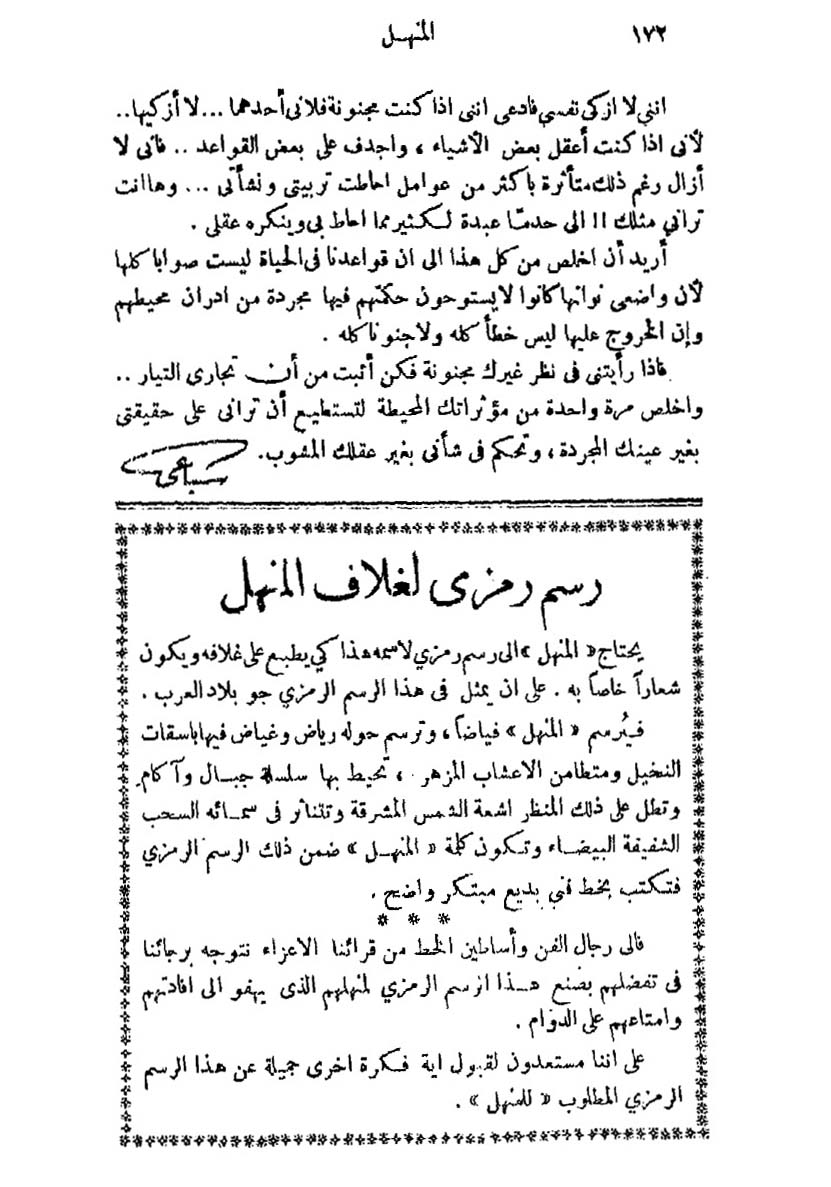 ١٧٢
المنهـل
اننى لا ازكى نفسي فادعى اننى اذا كنت مجنونة فلانى أحدهما ... لا أزكيها ..
لأنى اذا كنت أعقل بعض الأشياء ، واجدف على بعض القواعد .. فأنى لا
أزال رغم ذلك متأثرة بأكثر من عوامل احاطت تربيتى ونشأتى ... وها انت
ترانى مثلك !! الى حد ما عبدة لكثير مما احاط بى وينكره عقلى .
أريد أن اخلص من كل هذا الى ان قواعدنا فى الحياة ليست صوابا كلها
لأن واضعى نواتها كانوا لا يستوحون حكمتهم فيها مجردة من ادران محيطهم
وإن الخروج عليها ليس خطأ كله ولا جنونا كله .
فاذا رأيتنى فى نظر غيرك مجنونة فكن أثبت من أن تجارى التيار ..
واخلص مرة واحدة من مؤثراتك المحيطة لتستطيع أن ترانى على حقيقتى
بغير عينك المجردة ، وتحكم فى شأنى بغير عقلك المشوب .
سباعى
رسم رمزى لغلاف المنهل
يحتاج « المنهل » الى رسم رمزي لاسمه هذا كي يطبع على غلافه ويكون
شعاراً خاصاً به . على ان يمثل فى هذا الرسم الرمزي جو بلاد العرب .
فيُرسم « المنهل » فياضاً ، وترسم حوله رياض وغياض فيها باسقات
النخيل ومتطامن الاعشاب المزهر ، تحيط بها سلسلة جبـال وآكام
وتطل على ذلك المنظر اشعة الشمس المشرقة وتتناثر فى سمـائه السحب
الشفيفة البيضـاء وتـكون كلمة « المنهـل » ضمن ذلك الرسم الرمزي
فتكتب بخط فني بديع مبتكر واضح .
* * *
فالى رجال الفن وأساطين الخط من قرائنا الاعزاء نتوجه برجائنا
فى تفضلهم بصنع هـذا الرسم الرمزي لمنهلهم الذى يهفو الى افادتهم
وامتاعهم على الدوام .
على اننا مستعدون لقبول اية فـكرة اخرى جميلة عن هذا الرسم
الرمزي المطلوب « للمنهل » .